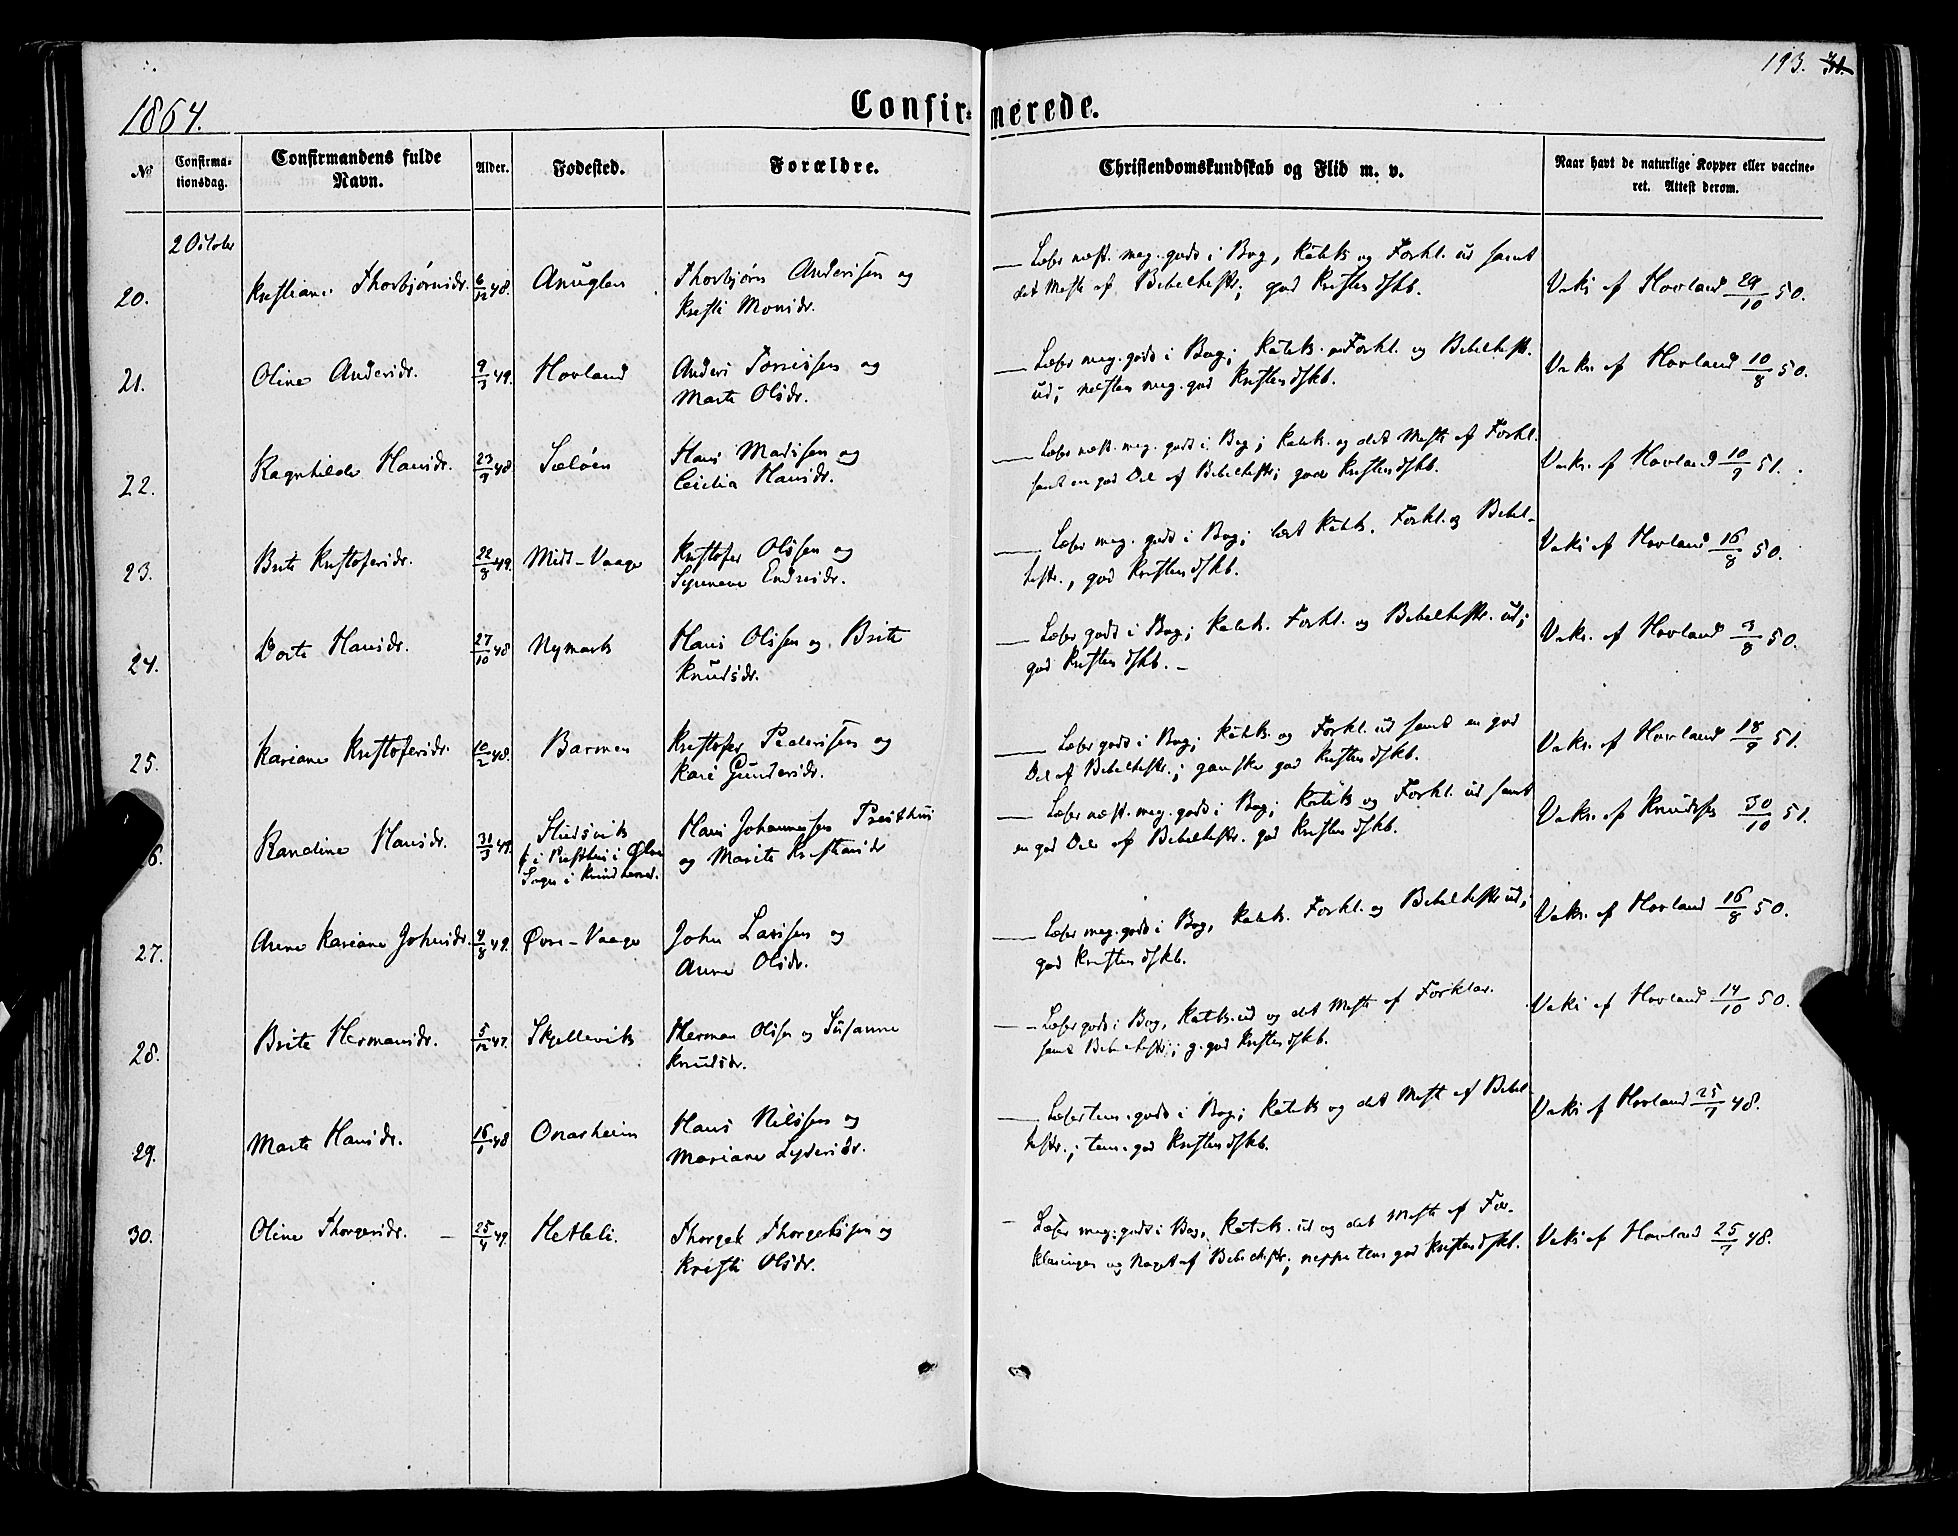 193.
1864.
Confirmerede.
No
Confirmationsdag.
Confirmandens fulde Navn.
Alder.
Fødested.
Forældre.
Christendomskundskab og Flid m. v.
Naar havt de naturlige Kopper eller vaccineret. Attest derom.
2 October
20. Kristiane Thorbjørnsdr. 6/12 48. Anuglen Thorbjørn Anderssen og
Kristi Monsdr.
Læser næst. meg. godt i Bog, Katek. og Forkl. ud samt
det Meste af Bibelhistr.; god Kristendskb.
Vaks. af Hovland 29/10 50.
21. Oline Andersdr. 9/3 49. Hovland Anders Tørrissen og
Marte Olsdr.
Læser meg. godt i Bog; Katek. Forkl. og Bibelhistr.
ud; næsten meg. god Kristendskb.
Vaks. af Hovland 10/8 50.
22. Ragnhilde Hansdr. 23/9 48 Sæløen Hans Madssen og
Cecilia Hansdr.
Læser næst. meg. godt i Bog; Katek. og det Meste af Forkl.
samt en god Del af Bibelhistr; god Kristendskb.
Vaks. af Hovland 10/9 51.
23. Brite Kristofersdr. 22/8 49. Midt-Vaage Kristofer Olssen og
Synneve Endresdr.
Læser meg. godt i Bog; læst Katek. Forkl. og Bibel-
histr., god Kristendskb.
Vaks af Hovland 16/8 50.
24. Dorte Hansdr. 27/10 48 Nymark Hans Olssen og Brite
Knudsdr.
Læser godt i Bog; Katek. Forkl. og Bibelhistr. ud;
god Kristendskb.
Vaks. af Hovland 3/8 50.
25. Kariane Kristofersdr. 10/2 48. Barmen Kristofer Pederssen og
Kari Gundersdr.
Læser godt i Bog; Katek. og Forkl. ud samt en god
Del af Bibelhistr.; ganske god Kristendskb.
Vaks. af Hovland 18/9 51.
26. Randine Hansdr. 31/3 49. Husvik
i Ølve
Sogn i Kvindherred.
Hans Johannessen Presthus
og Marite Kristiansdr
Læser næst. meg. godt i Bog; Katek. og Forkl. ud samt
en god Del af Bibelhistr. god Kristendskb.
Vaks. af Knudssen 30/10 51.
27. Anne Kariane Johnsdr. 4/8 49. Øvre-Vaage John Larssen og
Anne Olsdr.
Læser meg. godt i Bog, Katek. Forkl. og Bibelhistr ud;
god Kristendskb.
Vaks. af Hovland 16/8 50.
28. Brite Hermansdr. 5/12 47. Skjellevik Herman Olssen og Susanne
Knudsdr.
Læser godt i Bog, Katek. ud og det Meste af Forklar.
samt Bibelhistr; g. god Kristendskb.
Vaks af Hovland 14/10 50.
29. Marte Hansdr. 16/1 48 Onarheim Hans Nilssen og
Mariane Lydersdr.
Læser tem. godt i Bog; Katek og det Meste af Bibel
histr.; tem. god Kristendskb.
Vaks af Hovland 25/7 48.
30. Oline Thorgersdr. 25/4 49. Hetleli. Thorgek Thorgerssen og
Kristi Olsdr.
Læser meg: godt i Bog, Katek. ud og det Meste af For-
klaringen og Noget af Bibelhistr; neppe tem god Kristendskb.
Vaks af Hovland 25/7 48.